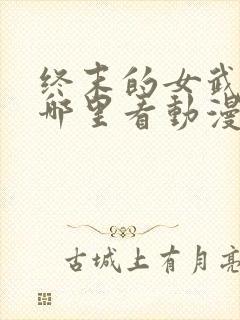 终末的女武
哪里看動漫
古城上有月亮